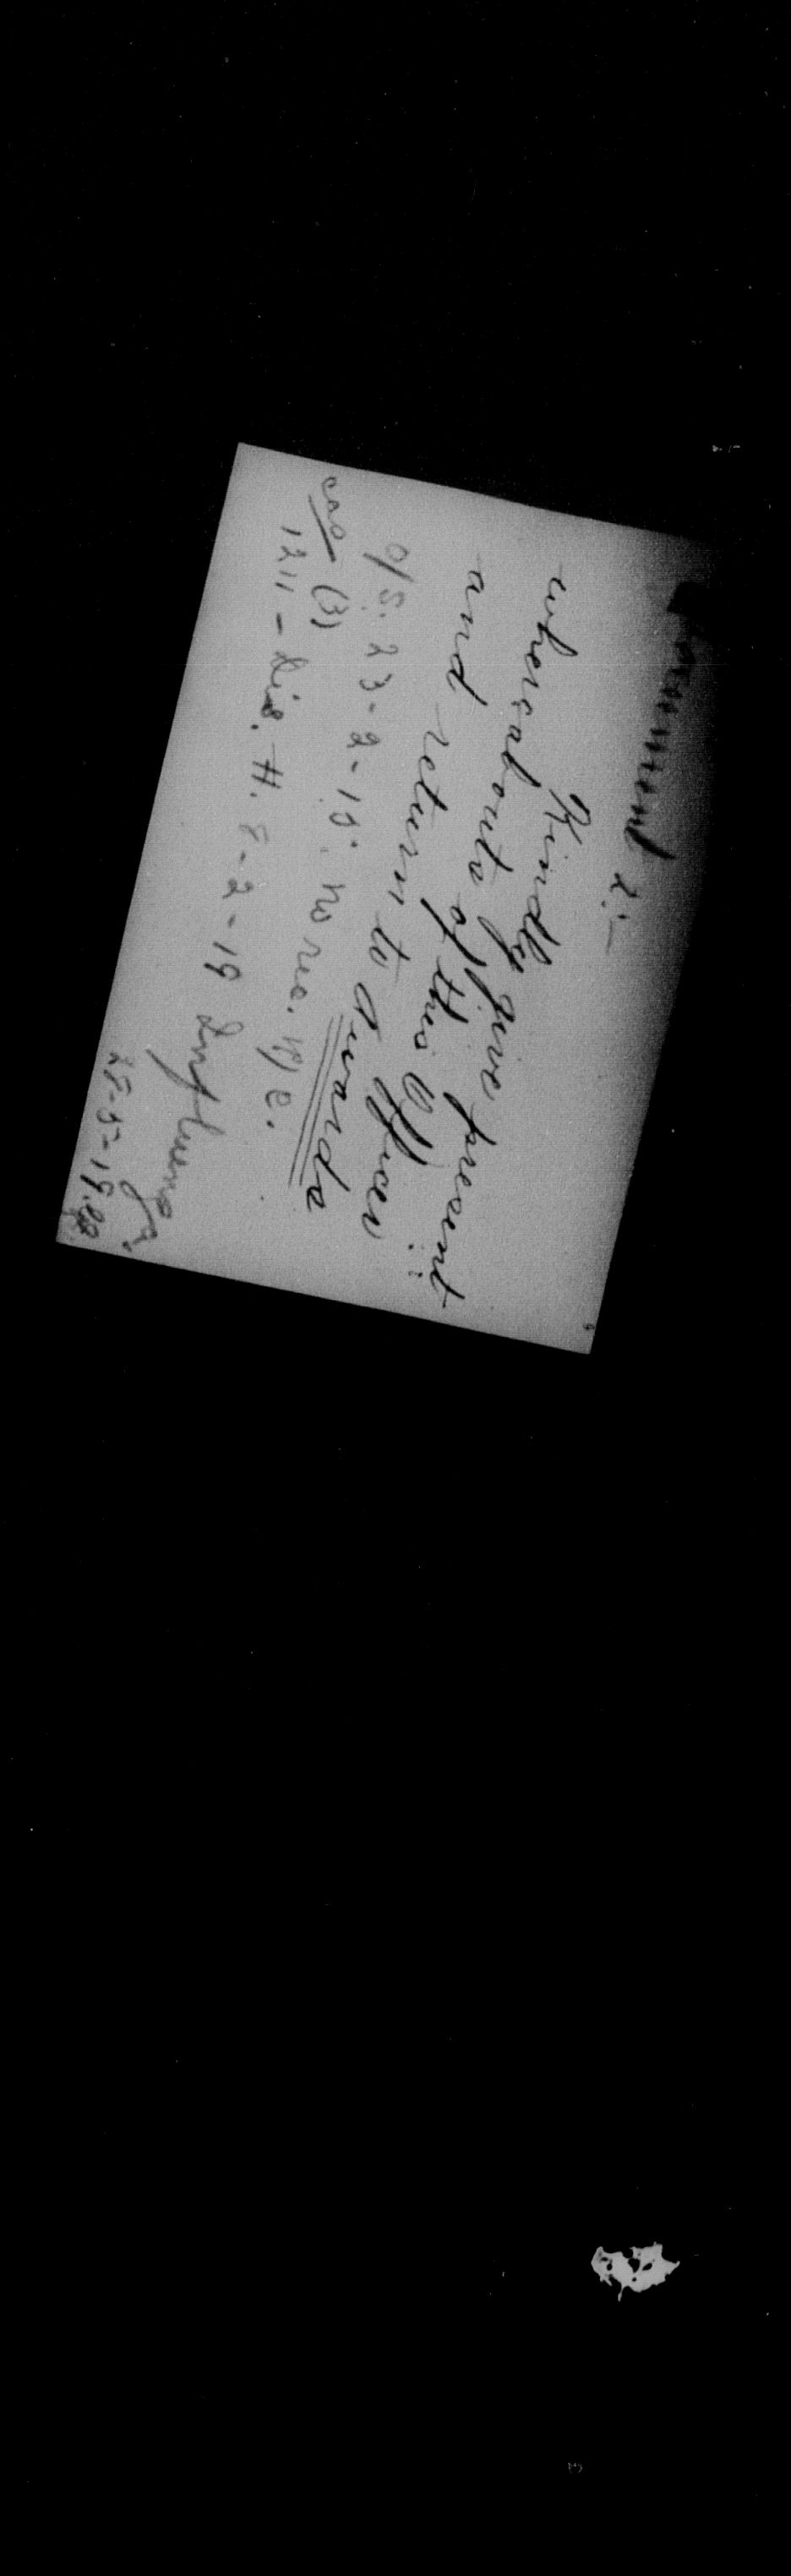 2:-
Kindly give present
whereabouts of this Officer
and return to Awards
O/S. 23-2-18. no rec. R/E.
cas (3)
1211 - Dis. H. 8-2-19 Influenza
25-5-19.